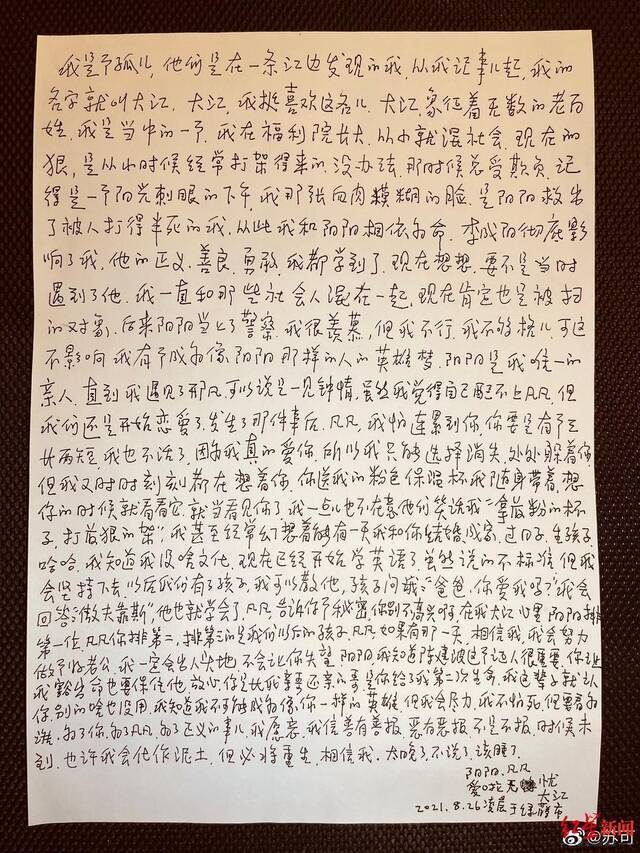 我是个孤儿,他们是在一条江边发现的我,从我记事儿起,我的
名字就叫大江,大江,我挺喜欢这名儿,大江,象征着无数的老百
姓,我是当中的一个,我在福利院长大,从小就混社会,现在的
狠,是从小时候经常打架得来的,没办法,那时候总受欺负,记
得是一个阳光刺眼的下午,我那张血肉模糊的脸,是阳阳救出
了被人打得半死的我,从此我和阳阳相依为命,李成阳彻底影
响了我,他的正义,善良,勇敢,我都学到了,现在想想,要不是当时
遇到了他,我一直和那些社会人混在一起,现在肯定也是被扫
的对象,后来阳阳当上了警察,我很羡慕,但我不行,我不够格儿,可这
不影响我有个成为像阳阳那样的人的英雄梦,阳阳是我唯一的
亲人,直到我遇见了那凡,可以说是一见钟情,虽然我觉得自己配不上凡凡,但
我们还是开始恋爱了,发生了那件事后,凡凡,我怕连累到你,你要是有个三
长两短,我也不活了,因为我真的爱你,所以我只能选择消失,处处躲着你,
但我又时时刻刻都在想着你,你送我的粉色保温杯我随身带着,想
你的时候就看看它,就当看见你了,我一点儿也不在意他们笑话我“拿最粉的杯
子,打最狠的架”,我甚至经常幻想着能有一天我和你结婚,成家,过日子,生孩子,
哈哈,我知道我没啥文化,现在已经开始学英语了,虽然说的不标准,但我
会坚持下去,以后我们有了孩子,我可以教他,孩子问我:“爸爸,你爱我吗?”我会
回答:“傲夫靠斯”他也就学会了,凡凡,告诉你个秘密,你别不高兴啊,在我大江心里阳阳排
第一位,凡凡你排第二,排第三的是我们以后的孩子,凡凡,如果有那一天,相信我,我会努力
做个好老公,我一定会出人头地,不会让你失望,阳阳,我知道陈建波这个证人很重要,你让
我豁出命也要保住他,放心,你是比我亲哥还亲的哥,是你给了我第二次生命,我这辈子就认
你,别的啥也没用,我知道我不可能成为像你一样的英雄,但我会尽力,我不怕死,但要看为
谁,为了你,为了凡凡,为了正义的事儿,我愿意,我信善有善报,恶有恶报,不是不报,时候未
到,也许我会化作泥土,但必将重生,相信我,太晚了,不说了,该睡了,
阳阳,凡凡
爱哦无忧
大江
2021.8.26凌晨于绿藤市
红星新闻
@苏可